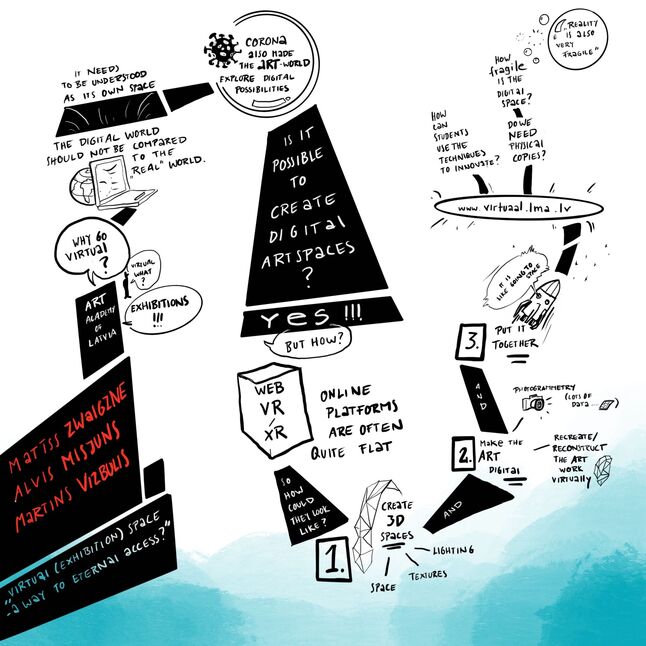 MATĪSS ZWAIGZNE
ALVIS MISJUNS
MARTINS VIZBULIS
„VIRTUAL (EXHIBITION) SPACE
- A WAY TO ETERNAL ACCESS?"
ART
ACADEMY
OF
LATVIA
WHY GO
VIRTUAL
?
VIRTUAL
WHAT
?
EXHIBITIONS
!!!
THE DIGITAL WORLD
SHOULD NOT BE COMPARED
TO THE
"REAL" WORLD.
IT NEEDS
TO BE UNDERSTOOD
AS ITS OWN SPACE
CORONA
ALSO MADE
THE ART-WORLD
EXPLORE DIGITAL
POSSIBILITIES
IS IT
POSSIBLE
TO
CREATE
DIGITAL
ARTSPACES
?
YES !!!
BUT HOW?
WEB
VR
/
XR
ONLINE
PLATFORMS
ARE OFTEN
QUITE FLAT
SO
HOW
COULD
THEY LOOK
LIKE?
1.
CREATE
3D
SPACES
SPACE
TEXTURES
LIGHTING
AND
2.
MAKE THE
ART
DIGITAL
RECREATE/
RECONSTRUCT
THE ART
WORK
VIRTUALLY
PHOTOGRAMMETRY
(LOTS OF
DATA...
)
AND
3.
PUT IT
TOGETHER
IT IS
LIKE GOING TO
SPACE
www.virtual.lma.lv
HOW
CAN
STUDENTS
USE THE
TECHNIQUES
TO INNOVATE?
DO WE
NEED
PHYSICAL
COPIES?
HOW
fragile
IS THE
DIGITAL
SPACE?
„REALITY
IS ALSO
VERY
FRAGILE"